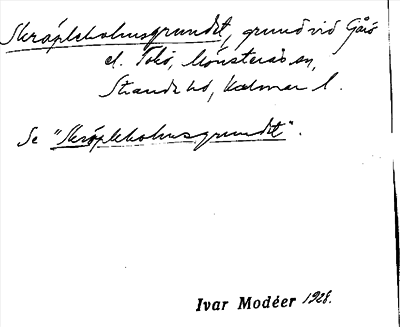 Skräpleholmsgrundet, grund vid Gåsö
el. Tokö, Mönsterås sn,
Stranda hd, Kalmar l.
Se "Skröpleholmsgrundet".
Ivar Modéer 1928.